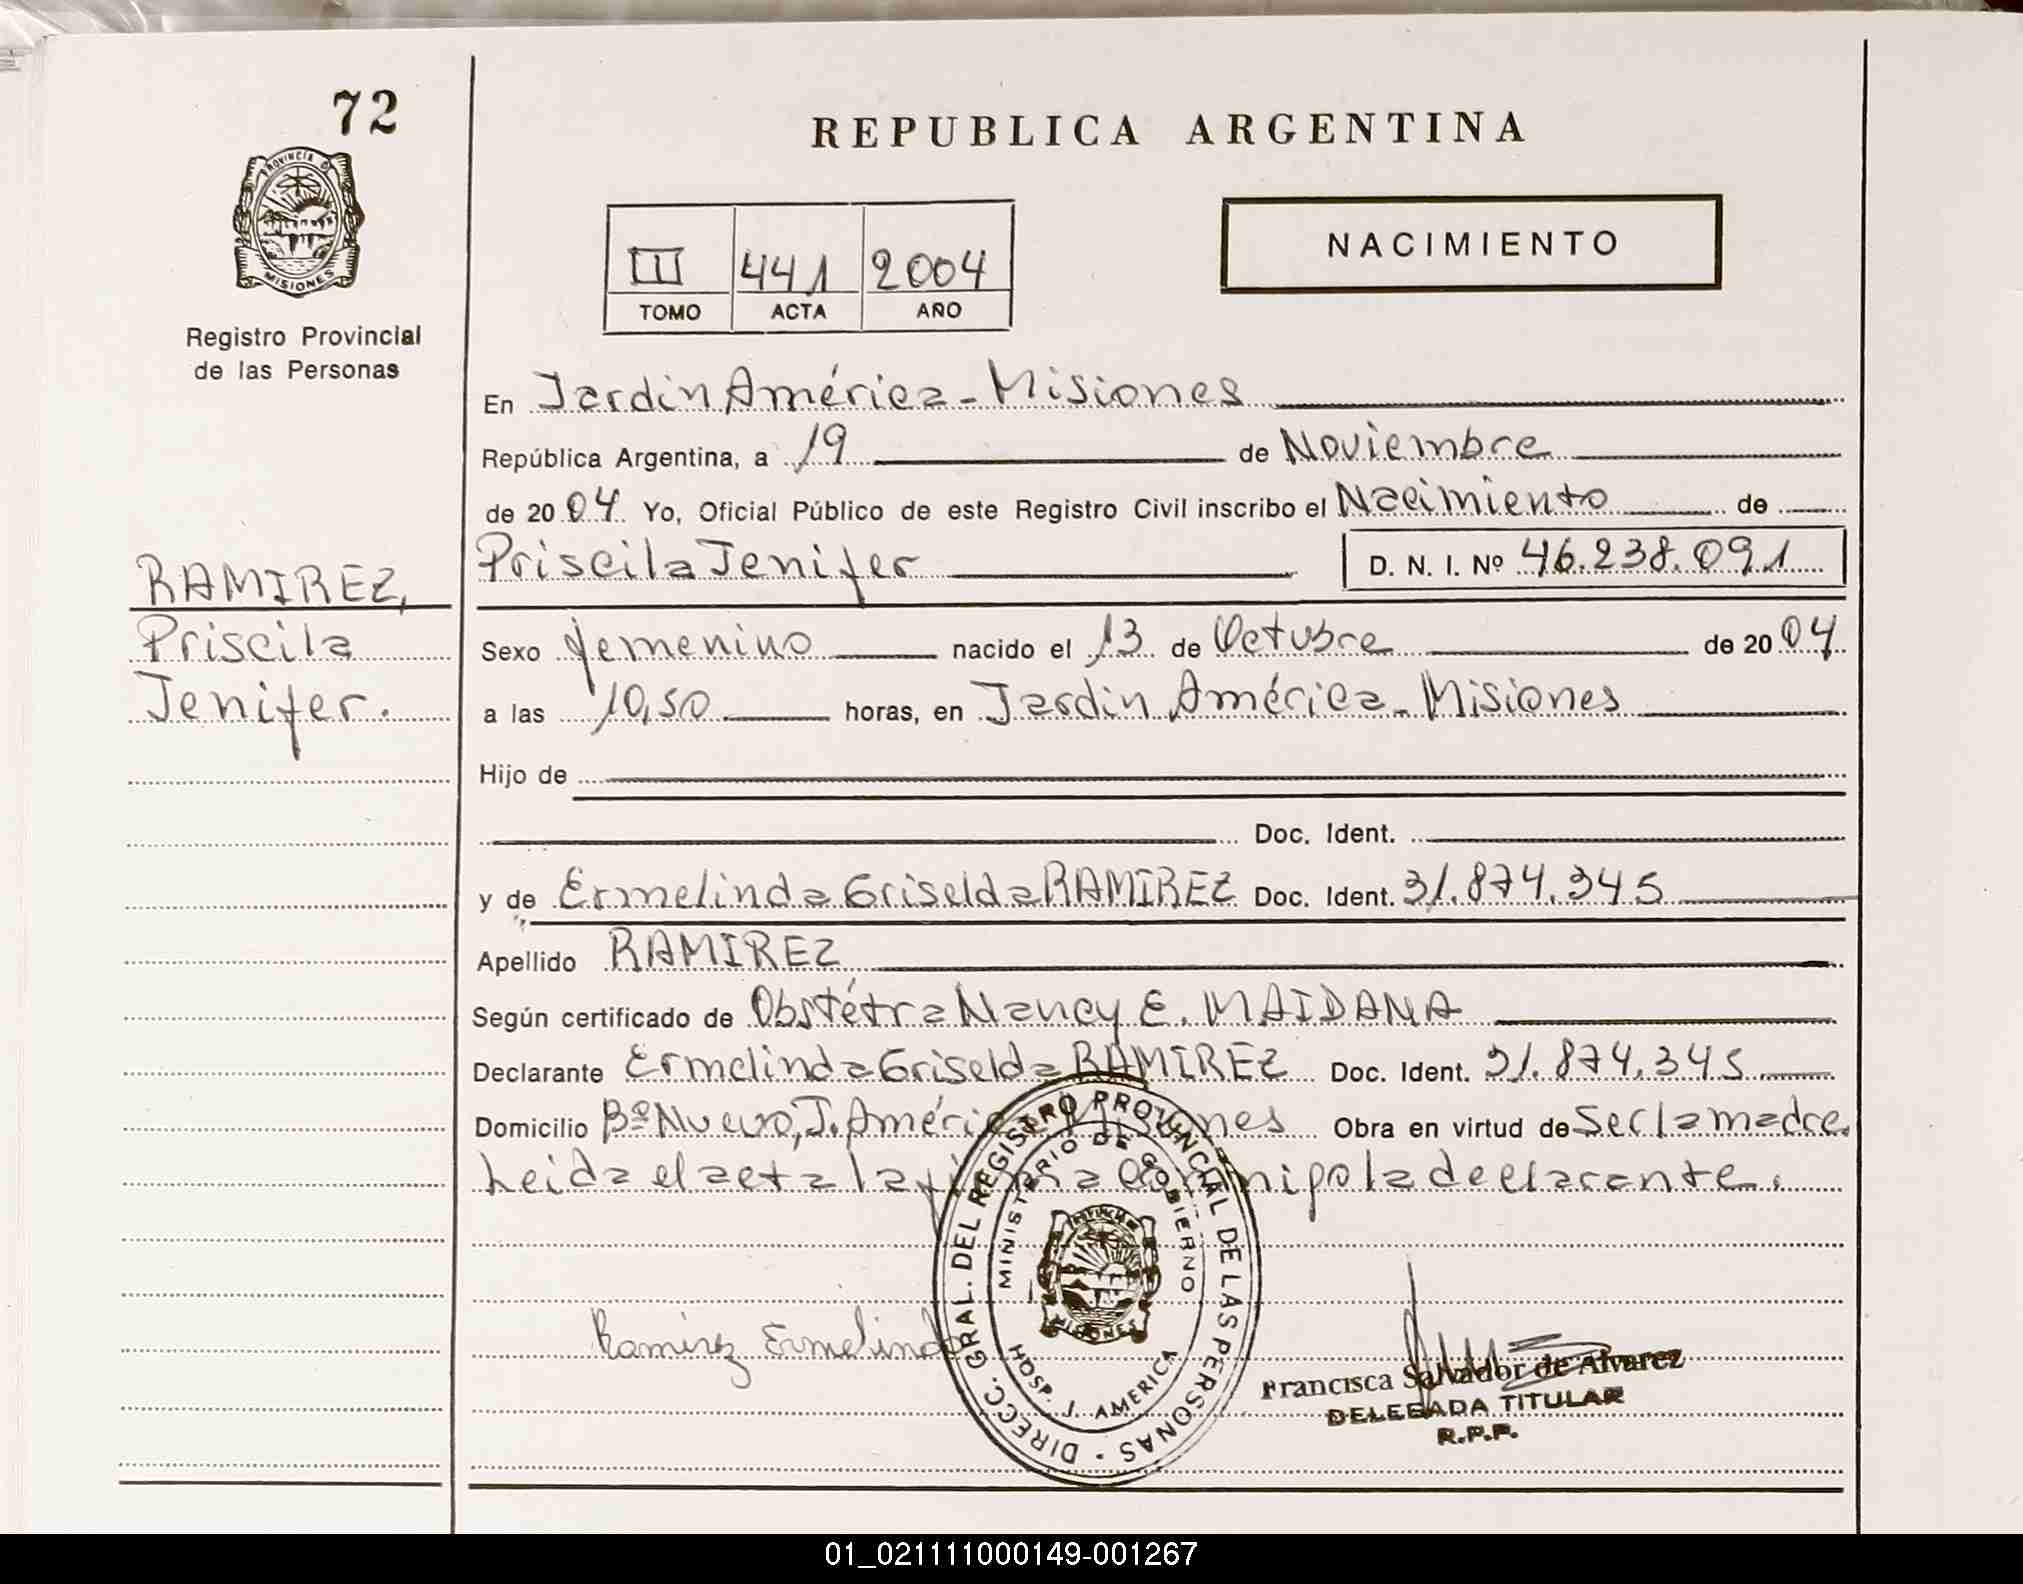 72
PROVINCIA D
MISIONES
Registro Provincial
de las Personas
RAMIREZ,
Priscila
Jenifer.
REPUBLICA ARGENTINA
III 441 2004
TOMO ACTA AÑO
NACIMIENTO
En Jardín América - Misiones
República Argentina, a 19 de Noviembre
de 20 04 Yo, Oficial Público de este Registro Civil inscribo el Nacimiento de
Priscila Jenifer D. N. I. Nº 46.238.091
Sexo femenino nacido el 13 de Octubre de 20 04
a las 10,50 horas, en Jardín América - Misiones
Hijo de
Doc. Ident.
y de Ermelinda Griselda RAMIREZ Doc. Ident. 31.874.345
Apellido RAMIREZ
Según certificado de Obstétra Nancy E. MAIDANA
Declarante Ermelinda Griselda RAMIREZ Doc. Ident. 31.874.345
Domicilio Bº Nuevo, J. América Misiones Obra en virtud de ser la madre.
Leida el acta la firma conmigo la declarante.
DIRECC. GRAL. DEL REGISTRO PROVINCIAL DE LAS PERSONAS
MINISTERIO DE GOBIERNO
MISIONES
HOSP. J. AMERICA
Ramirez Ermelinda
Francisca Salvador de Alvarez
DELEGADA TITULAR
R.P.P.
01_021111000149-001267